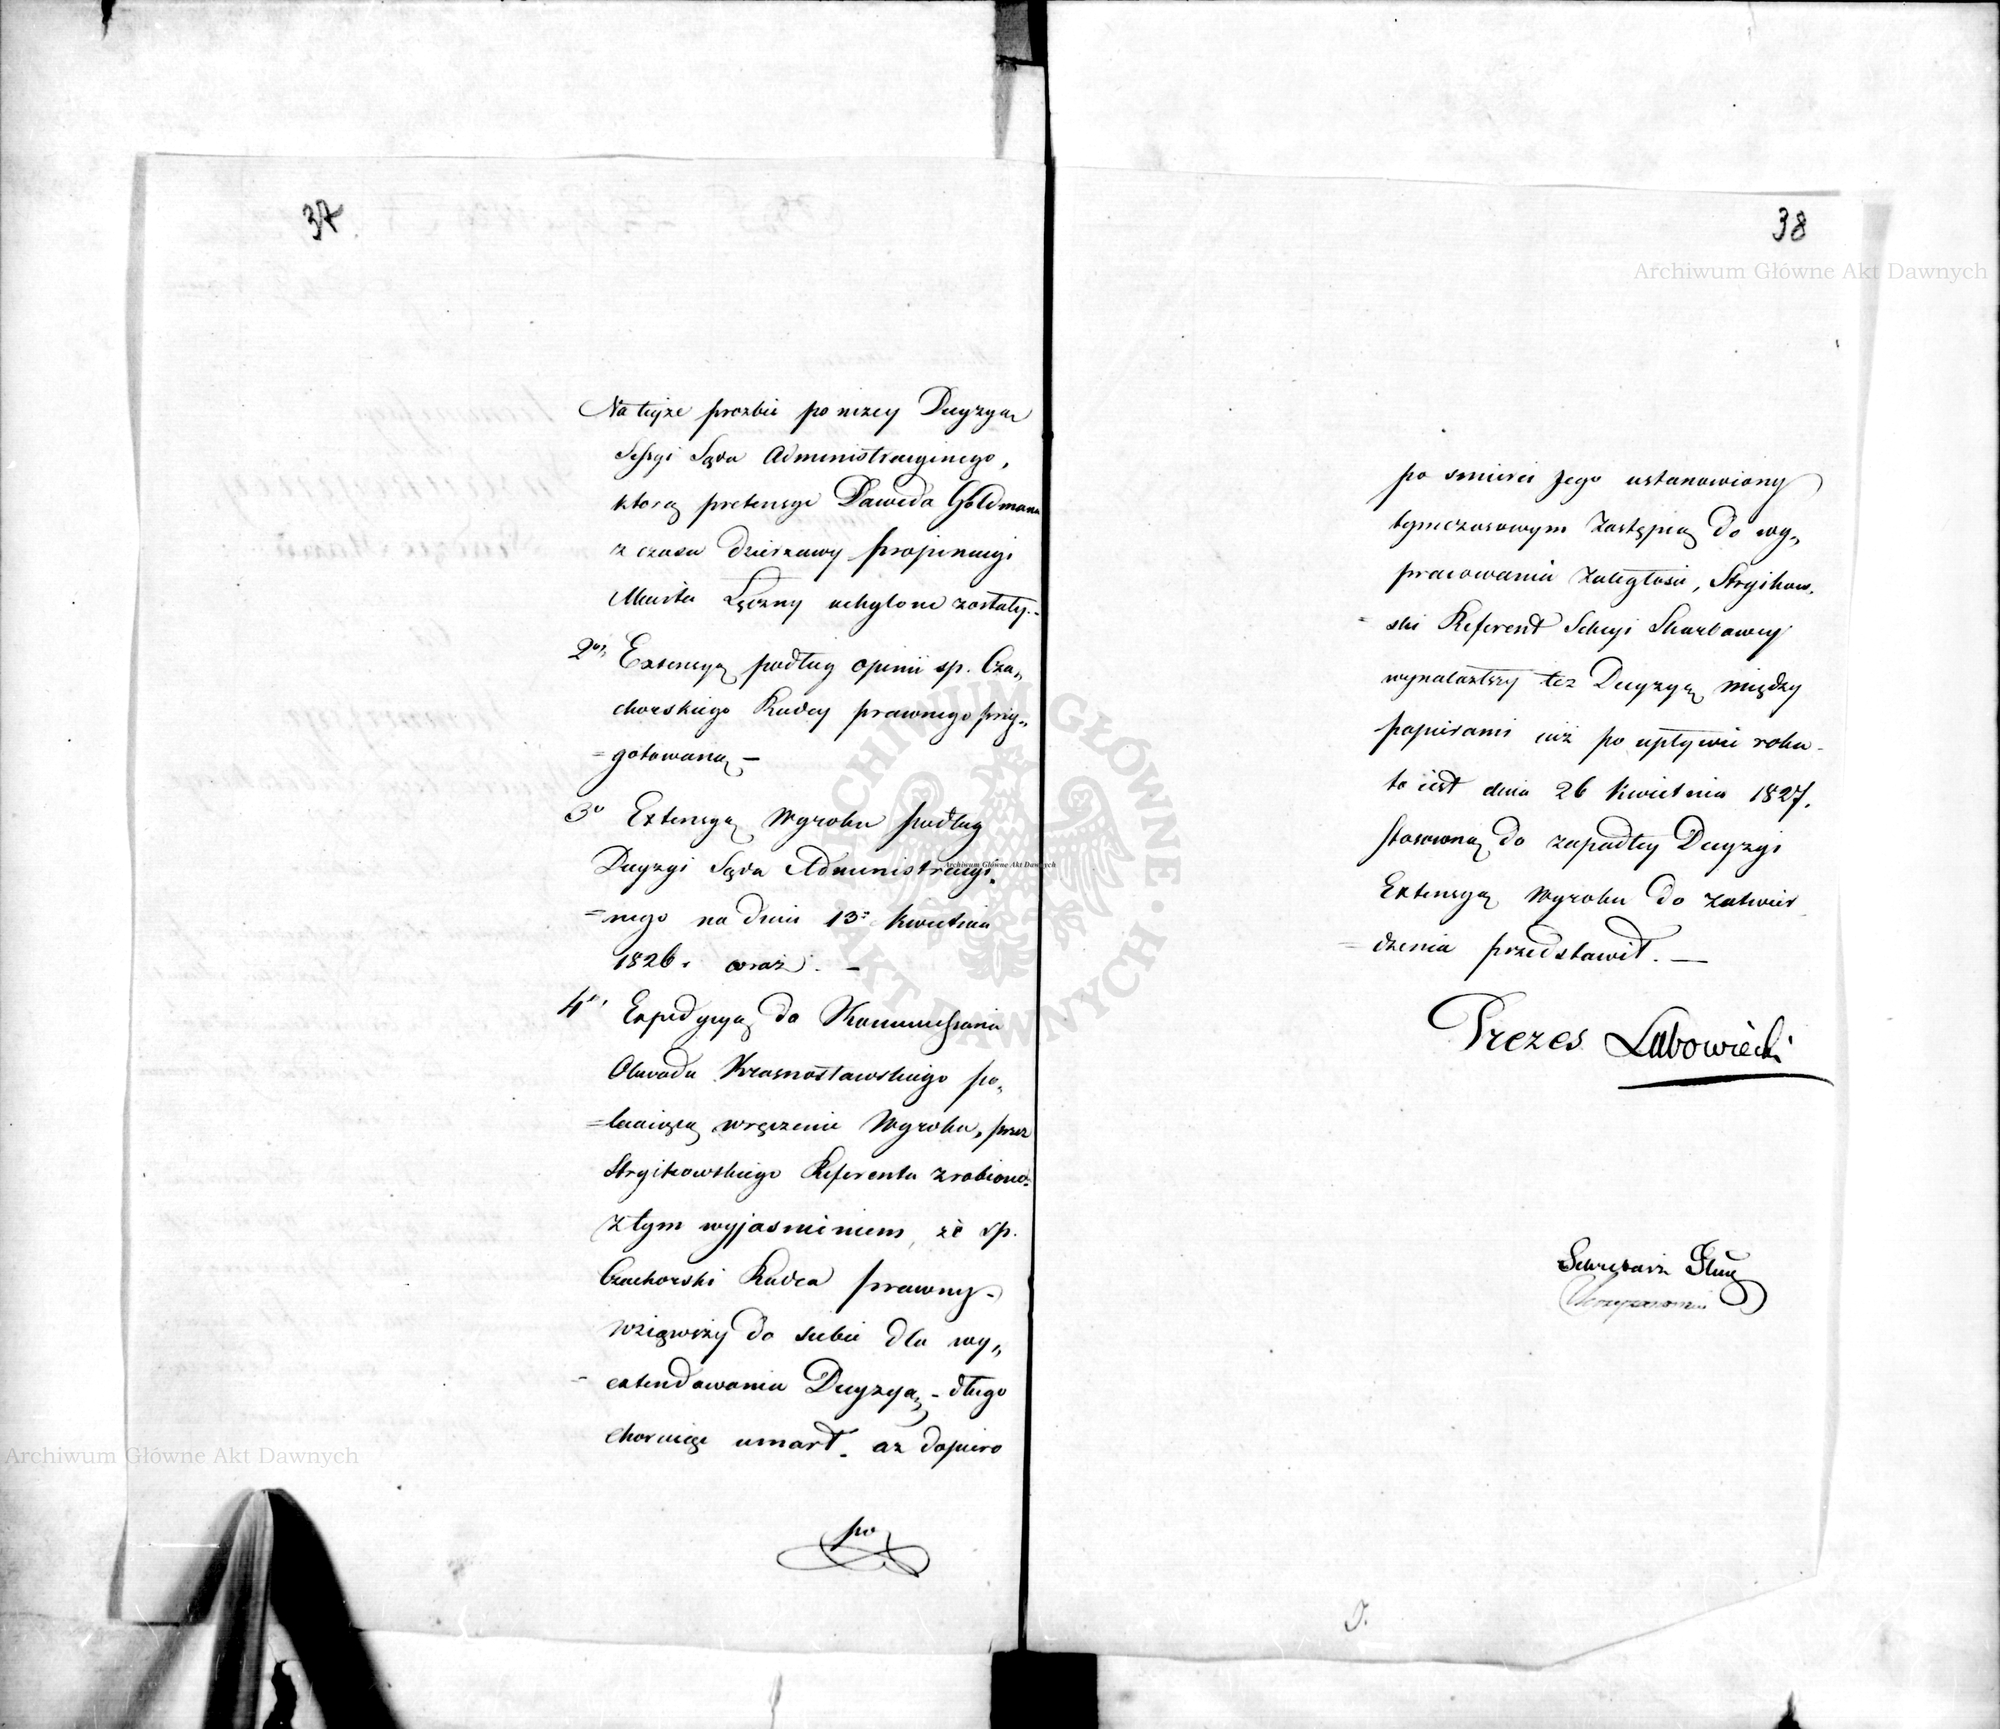 37
Na teyże prozbie po niżey Decyzyą
Sessyi Sądu Administracyinego,
ktorą pretensye Dawida Goldmana
z czasu dzierzawy propinacyi
Miasta Łęczny uchylone zostały.-
2do Extensyą podług opinii sp. Cza„
chorskiego Radcy prawnego przy„
=gotowaną –
3o Extensyą Wyroku podług
Decyzyi Sądu Administracyi„
=nego na dniu 13= Kwietnia
1826. oraz. –
4to Expedycyą do Kommissarza
Obwodu Krasnostawskiego po„
=lecaiącą wręczenie Wyroku, przez
Stryikowskiego Referenta zrobione-
z tym wyjasnieniem, że sp.
Czachorski Radca prawny -
wziąwszy do siebie dla wy„
- extendowania Decyzyą - długo
choruiąc umarł. aż dopiero
po
38
po smierci jego ustanowiony
tymczasowym Zastępcą do wy„
pracowania Zaległosci, Stryikow„
=ski Referent Sekcyi Skarbowey
wynalazłszy też Decyzyą między
papierami iuż po upływie roku -
to iest dnia 26 Kwietnia 1827.
stosowną do zapadłey Decyzyi
Extensyą Wyroku do zatwier
=dzenia przedstawił. —
Prezes Lubowiecki
Sekretarz
Archiwum Główne Akt Dawnych
Archiwum Główne Akt Dawnych
Archiwum Główne Akt Dawnych
ARCHIWUM GŁÓWNE AKT DAWNYCH